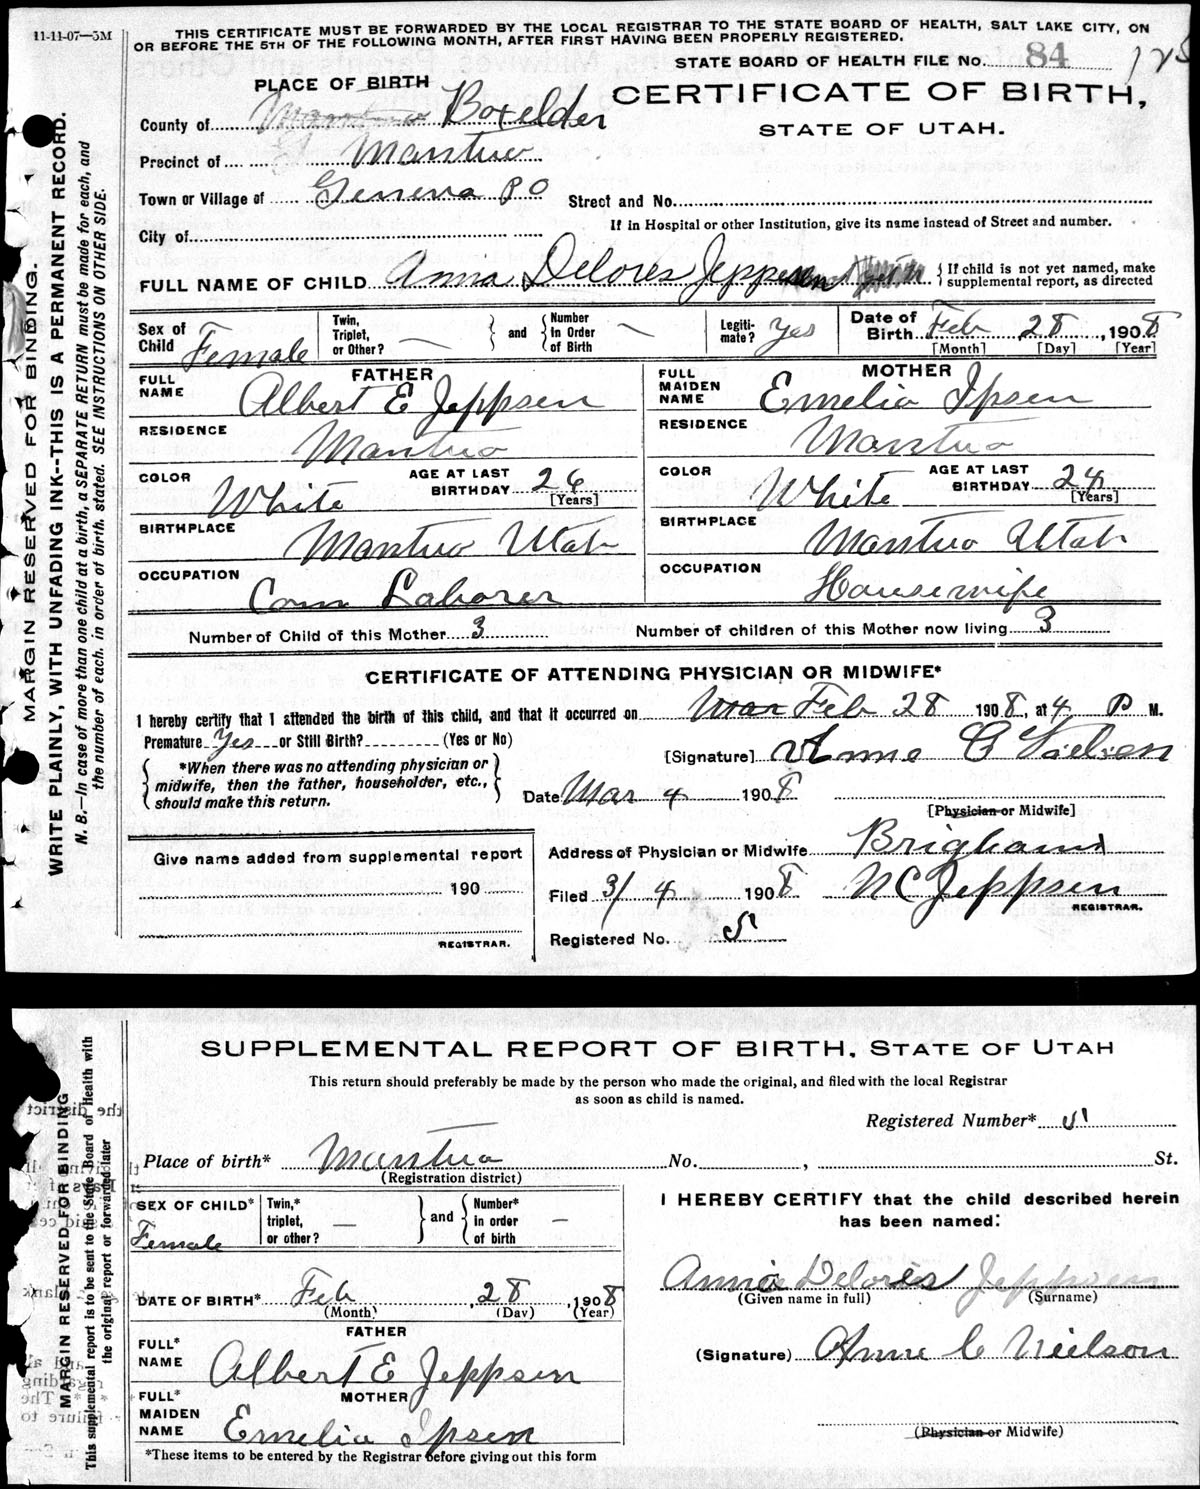 11-11-07—5M
THIS CERTIFICATE MUST BE FORWARDED BY THE LOCAL REGISTRAR TO THE STATE BOARD OF HEALTH, SALT LAKE CITY, ON
OR BEFORE THE 5TH OF THE FOLLOWING MONTH, AFTER FIRST HAVING BEEN PROPERLY REGISTERED.
STATE BOARD OF HEALTH FILE No. 84
PLACE OF BIRTH
CERTIFICATE OF BIRTH,
STATE OF UTAH.
County of Boxelder
Precinct of Mantua
Town or Village of Geneva P O
Street and No.
If in Hospital or other Institution, give its name instead of Street and number.
City of
FULL NAME OF CHILD Anna Delores Jeppsen
{ If child is not yet named, make
supplemental report, as directed
Sex of Child Female
Twin, Triplet, or Other? —
and
Number in Order of Birth —
Legiti-mate? Yes
Date of Birth Feb 28, 1908
[Month] [Day] [Year]
FATHER
FULL NAME Albert E Jeppsen
RESIDENCE Mantua
COLOR White
AGE AT LAST BIRTHDAY 26 [Years]
BIRTHPLACE Mantua Utah
OCCUPATION Com Laborer
MOTHER
FULL MAIDEN NAME Emelia Ipsen
RESIDENCE Mantua
COLOR White
AGE AT LAST BIRTHDAY 24 [Years]
BIRTHPLACE Mantua Utah
OCCUPATION Housewife
Number of Child of this Mother 3
Number of children of this Mother now living 3
CERTIFICATE OF ATTENDING PHYSICIAN OR MIDWIFE*
I hereby certify that I attended the birth of this child, and that it occurred on Mar Feb 28 1908, at 4 P M.
Premature Yes or Still Birth? (Yes or No)
[Signature] Anne C Nielson
{ *When there was no attending physician or
midwife, then the father, householder, etc.,
should make this return. }
Date Mar 4 1908
[Physician or Midwife]
Give name added from supplemental report
190
REGISTRAR.
Address of Physician or Midwife Brigham
Filed 3/4 1908 N C Jeppsen
REGISTRAR.
Registered No. 5
MARGIN RESERVED FOR BINDING.
WRITE PLAINLY, WITH UNFADING INK--THIS IS A PERMANENT RECORD.
N. B.—In case of more than one child at a birth, a SEPARATE RETURN must be made for each, and
the number of each, in order of birth, stated. SEE INSTRUCTIONS ON OTHER SIDE.
SUPPLEMENTAL REPORT OF BIRTH, STATE OF UTAH
This return should preferably be made by the person who made the original, and filed with the local Registrar
as soon as child is named.
Registered Number* 5
Place of birth* Mantua No. , St.
(Registration district)
SEX OF CHILD* Female
Twin,* triplet, or other? —
and
Number* in order of birth —
I HEREBY CERTIFY that the child described herein
has been named:
DATE OF BIRTH* Feb 28, 1908
(Month) (Day) (Year)
Annie Delores Jeppsen
(Given name in full) (Surname)
FATHER
FULL* NAME Albert E Jeppsen
(Signature) Anne C Nielson
MOTHER
FULL* MAIDEN NAME Emelia Ipsen
(Physician or Midwife)
*These items to be entered by the Registrar before giving out this form
MARGIN RESERVED FOR BINDING
This supplemental report is to be sent to the State Board of Health with
the original report or forwarded later